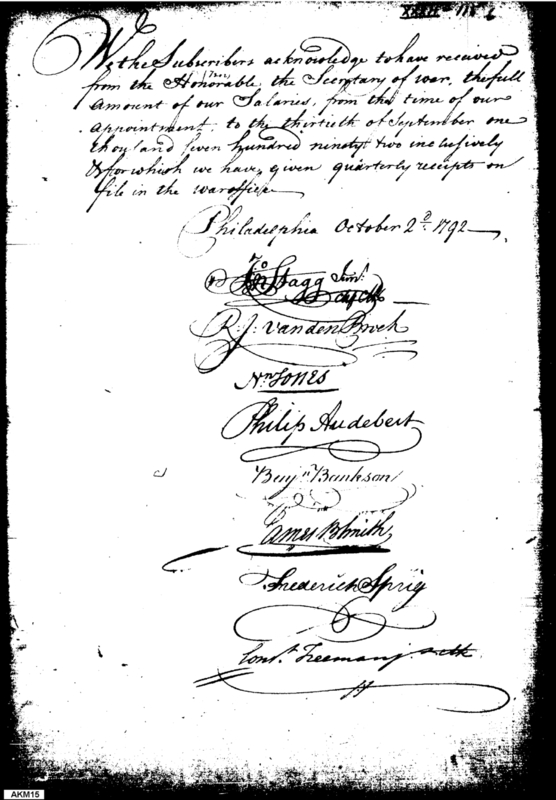 We the Subscribers acknowledge to have received
from the Honorable, the Secretary of war, the full
Amount of our Salaries, from the time of our
appointment, to the thirtieth of September one
thousand seven hundred ninety two inclusively
& for which we have given quarterly receipts on
file in the war office
Philadelphia October 2d. 1792
Jno Stagg Junr.
R. J. Vanden Broek
Nn Jones
Philip Audebert
Benjn Bankson
James B Smith
Frederick Sprig
Const. Freeman
AKM15